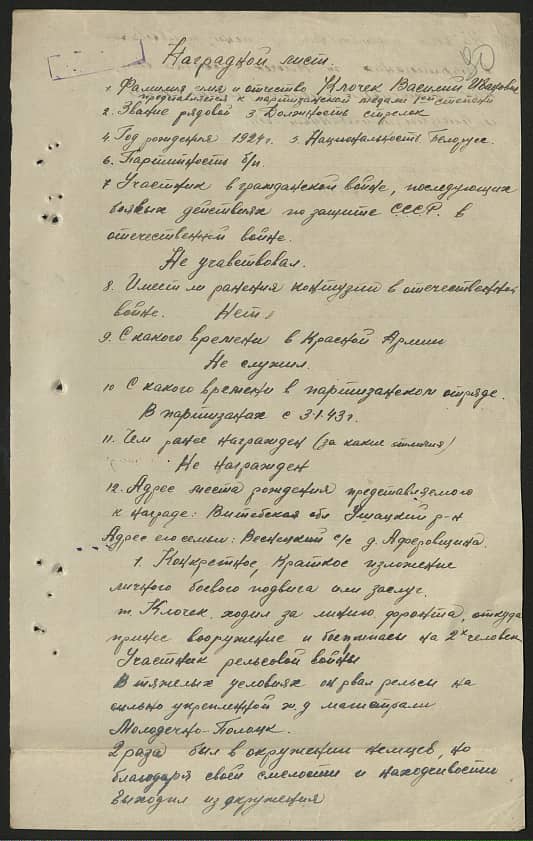 Наградной лист.
1. Фамилия имя и отчество Клочек Василий Иванович
представляется к партизанской медали 1ой степени
2. Звание рядовой 3. Должность стрелок
4. Год рождения 1924 г. 5. Национальность Белорус.
6. Партийность б/п.
7. Участник в гражданской войне, последующих
боевых действиях по защите СССР. в
отечественной войне.
Не учавствовал.
8. Имеет ли ранения контузии в отечественной
войне. Нет
9. С какого времени в Красной Армии
Не служил.
10 С какого времени в партизанском отряде.
В партизанах с 3.1.43 г.
11. Чем ранее награжден (за какие отличия)
Не награжден
12. Адрес места рождения представляемого
к награде: Витебская обл Ушацкий р-н
Адрес его семьи: Веснецкий с/с д. Аферовщина.
1. Конкретное, краткое изложение
личного боевого подвига или заслуг.
т. Клочек ходил за линию фронта, откуда
принес вооружение и боеприпасы на 2х человек
Участник рельсовой войны
В тяжелых условиях он рвал рельсы на
сильно укрепленной ж.д магистрали
Молодечно-Полоцк.
2 раза был в окружении немцев, но
благодаря своей смелости и находчивости
выходил из окружения